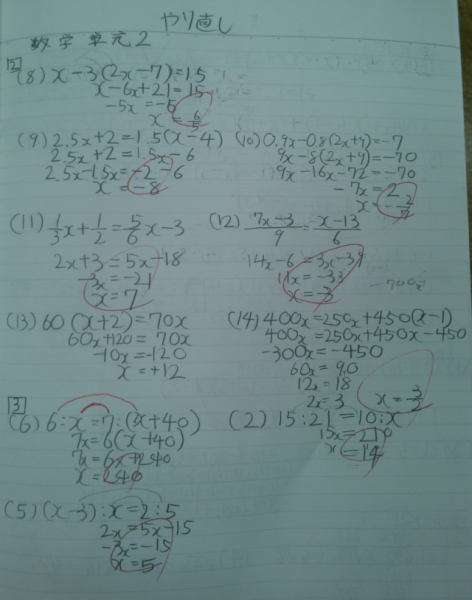 やり直し
数学 単元2
[2]
(8) x-3(2x-7)=15
x-6x+21=15
-5x=-6
x=6/5
(9) 2.5x+2=1.5(x-4)
2.5x+2=1.5x-6
2.5x-1.5x=-2-6
x=-8
(10) 0.9x-0.8(2x+9)=-7
9x-8(2x+9)=-70
9x-16x-72=-70
-7x=2
x=-2/7
(11) 1/3x+1/2=5/6x-3
2x+3=5x-18
-3x=-21
x=7
(12) 7x-3/9=x-13/6
14x-6=3x-39
11x=-33
x=-3
(13) 60(x+2)=70x
60x+120=70x
-10x=-120
x=+12
(14) 400x=250x+450(x-1)
400x=250x+450x-450
-300x=-450
60x=90
12x=18
2x=3
x=3/2
[3]
(6) 6:x=7:(x+40)
7x=6(x+40)
7x=6x+240
x=240
(2) 15:21=10:x
15x=210
x=14
(5) (x-3):x=2:5
2x=5x-15
-3x=-15
x=5